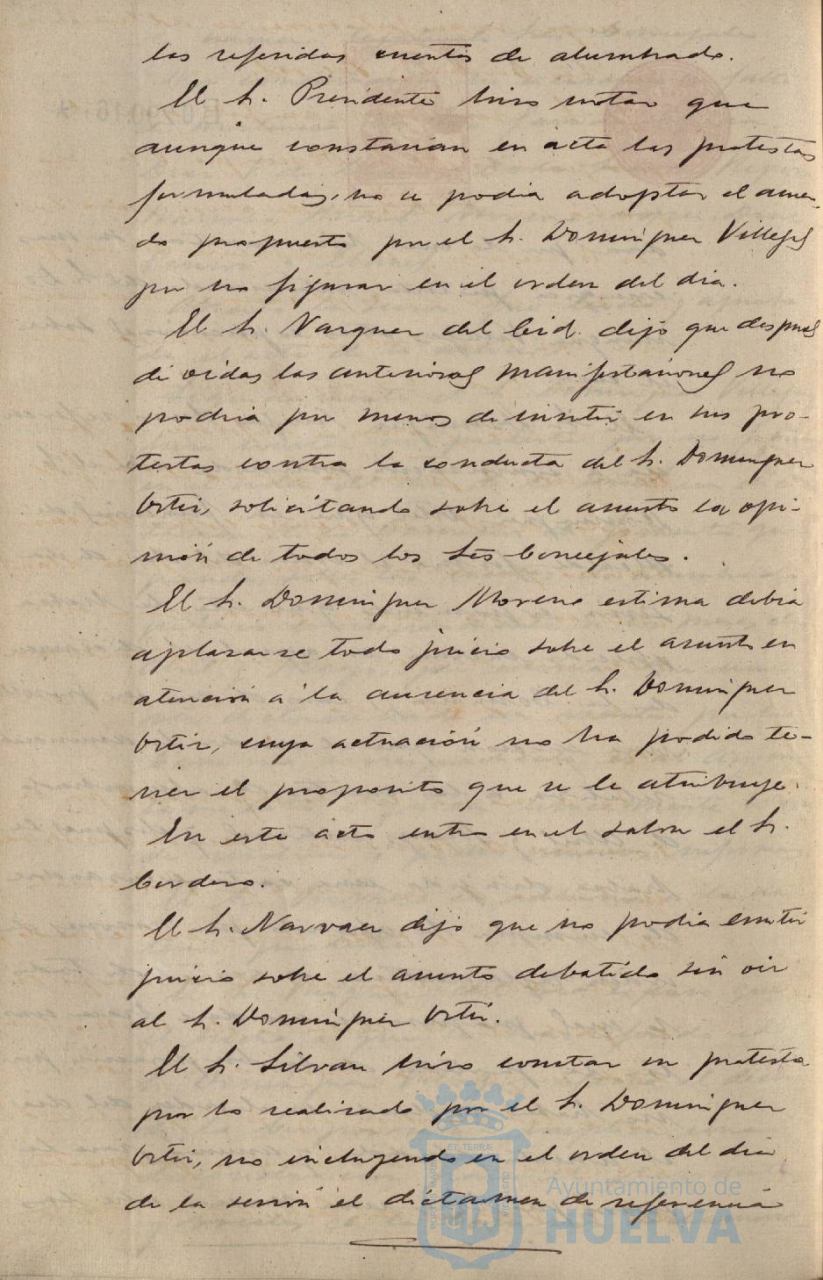 las referidas cuentas de alumbrado.
El Sr. Presidente hizo notar que
aunque constarian en acta las protestas
formuladas, no se podia adoptar el acuer-
do propuesto por el Sr. Dominguez Villegas
por no figurar en el orden del dia.
El Sr. Vazquez del Cid. dijo que despues
de oidas las anteriores manifestaciones no
podria por menos de insistir en sus pro-
testas contra la conducta del Sr. Dominguez
Ortiz, solicitando sobre el asunto la opi-
nión de todos los Sres Concejales.
El Sr. Dominguez Moreno estima debia
aplazarse todo juicio sobre el asunto en
atención á la ausencia del Sr. Dominguez
Ortiz, cuya actuación no ha podido te-
ner el proposito que se le atribuye.
En este acto entra en el salon el Sr.
Cordero.
El Sr. Narvaez dijo que no podia emitir
juicio sobre el asunto debatido sin oir
al Sr. Dominguez Ortiz.
El Sr. Silvan hizo constar su protesta
por lo realizado por el Sr. Dominguez
Ortiz, no incluyendo en el orden del dia
de la sesión el dictamen de referencia
Ayuntamiento de
HUELVA